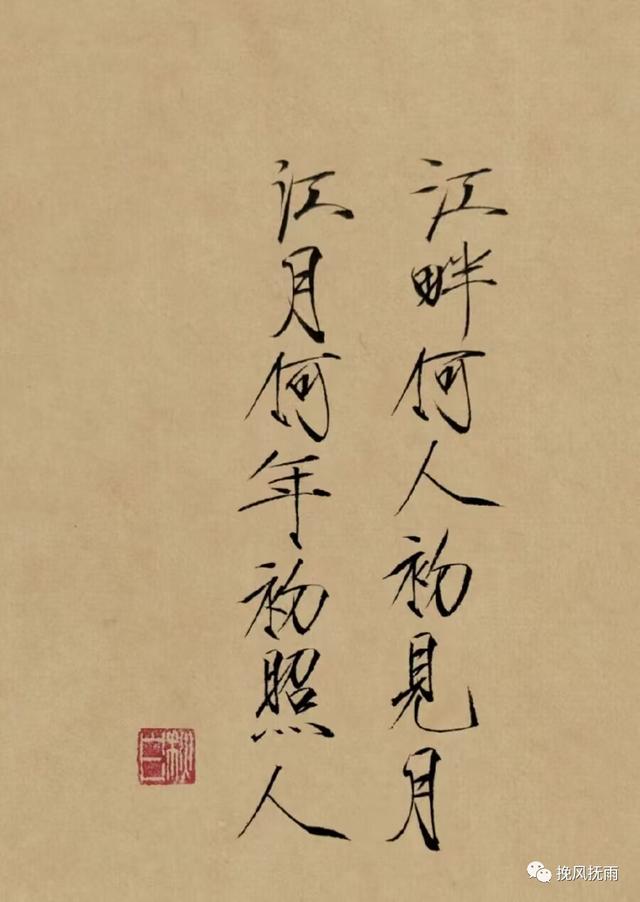 江畔何人初見月
江月何年初照人
挽风抚雨